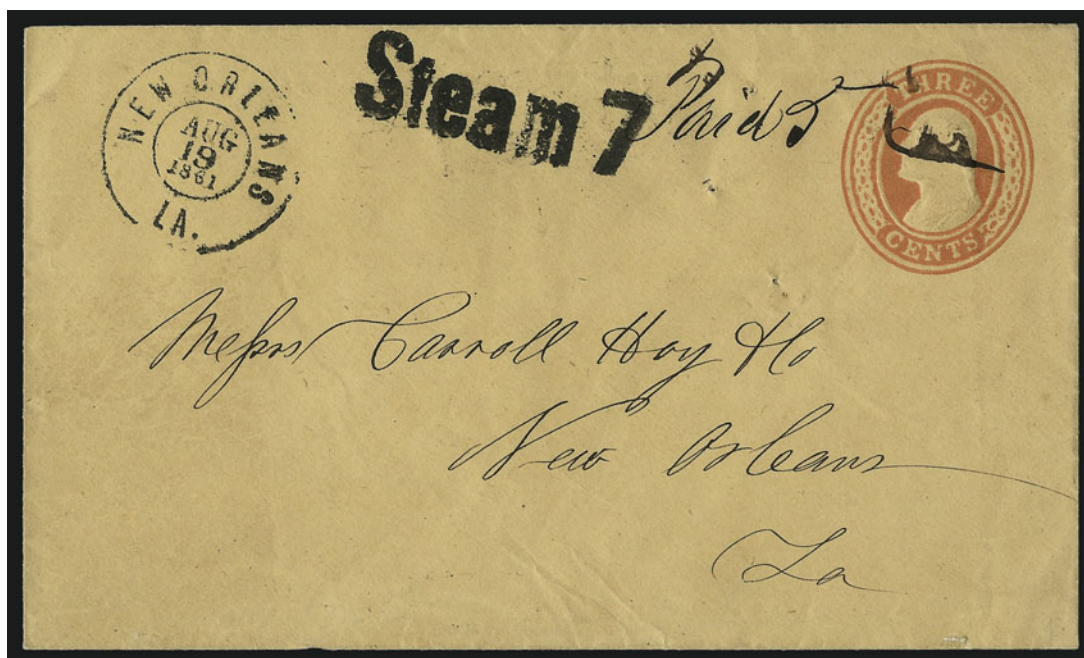 NEW ORLEANS
AUG
19
1861
LA.
Steam 7
Paid 5
THREE
CENTS
Messrs Carroll Hoy & Co
New Orleans
La